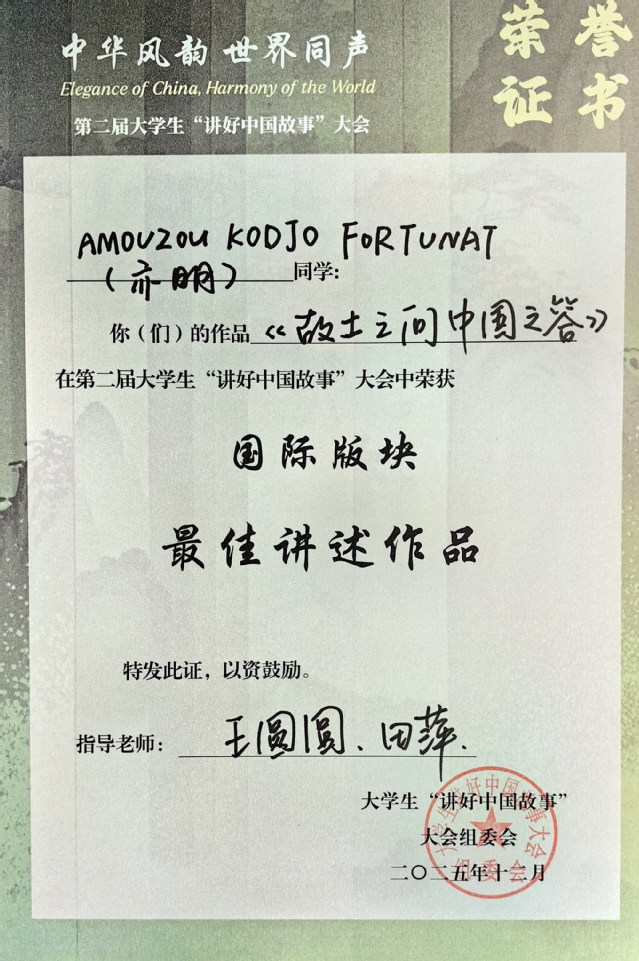 荣誉
证书
中华风韵 世界同声
Elegance of China, Harmony of the World
第二届大学生“讲好中国故事”大会
AMOUZOU KODJO FORTUNAT
(亦明) 同学:
你（们）的作品《故土之问中国之答》
在第二届大学生“讲好中国故事”大会中荣获
国际版块
最佳讲述作品
特发此证，以资鼓励。
指导老师: 王圆圆、田萍.
大学生“讲好中国故事”
大会组委会
二〇二五年十二月
大学生讲好中国故事大会
组委会